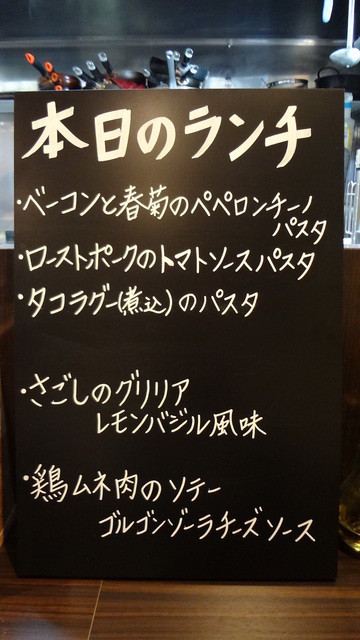 本日のランチ
・ベーコンと春菊のペペロンチーノ
パスタ
・ローストポークのトマトソースパスタ
・タコラグー(煮込)のパスタ
・さごしのグリリア
レモンバジル風味
・鶏ムネ肉のソテー
ゴルゴンゾーラチーズソース